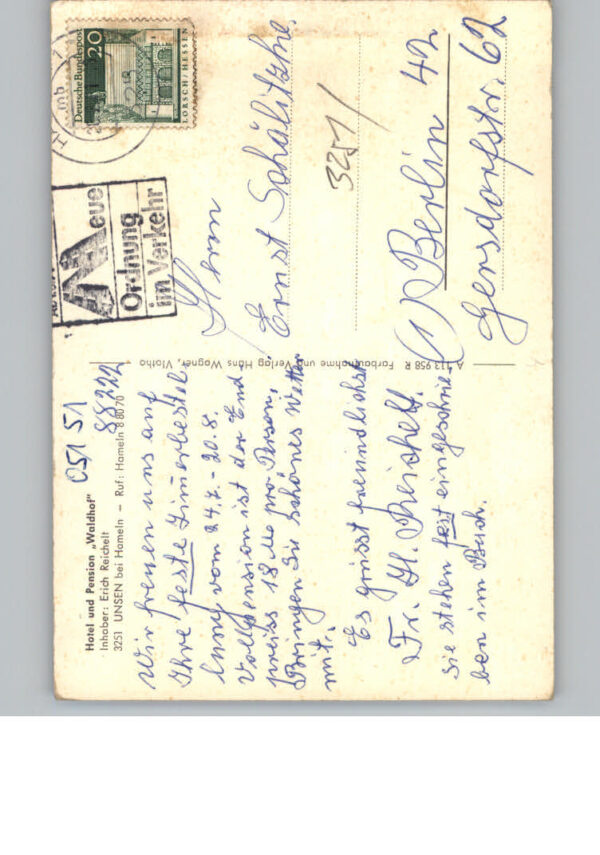 Hotel und Pension „Waldhof"
Inhaber: Erich Reichelt
3251 UNSEN bei Hameln — Ruf: Hameln 88070
05151
88222
Wir freuen uns auf
Ihre feste Zimerbestel
lung vom 24.7. - 20.8.
Vollpension ist der End
preiss 18 M pro Person,
Bringen Sie schönes Wetter
mit.
Es grüsst freundlichst
Fr. H. Reichelt.
Sie stehen fest eingeschrie
ben im Buch.
A 113 958 R Farbaufnahme und Verlag Hans Wagner, Vlotho
Deutsche Bundespost
20
LORSCH/HESSEN
Neue
Ordnung
im Verkehr
Herrn
Ernst Schälitzke.
3251/
(1) Berlin 42
Gersdorfstr. 62